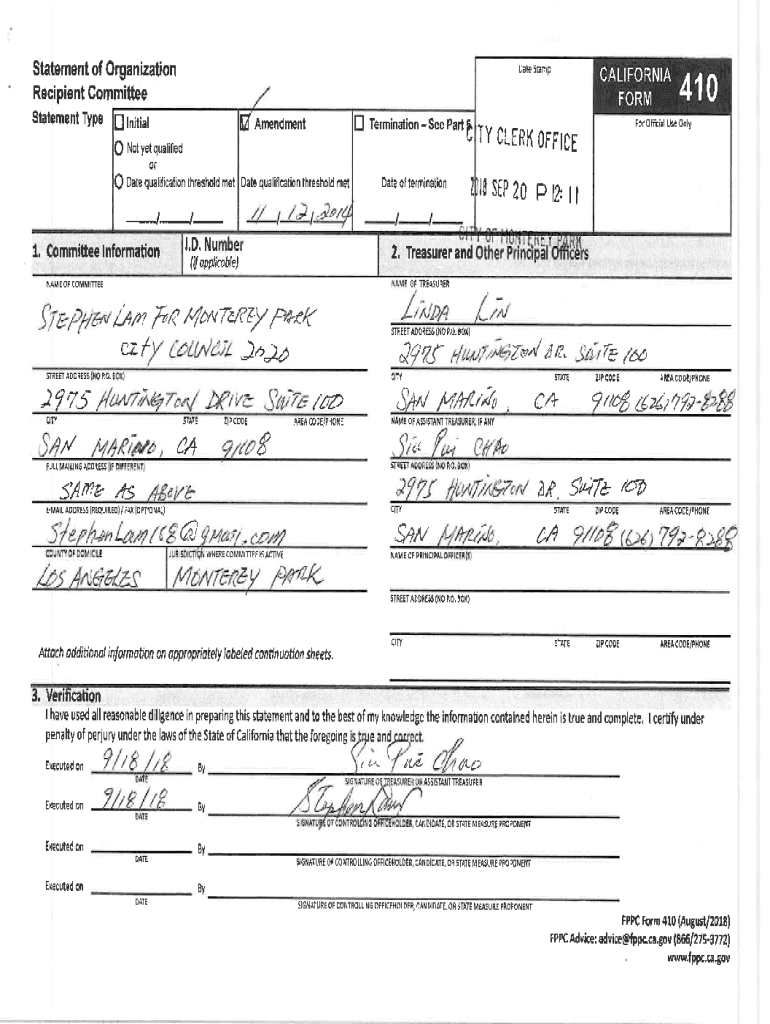 Statement of Organization
Recipient Committee
Statement Type
Initial
Amendment
Termination – See Part 5
Not yet qualified
or
Date qualification threshold met
Date qualification threshold met
Date of termination
/ /
11 / 12 / 2014
/ /
Date Stamp
CITY CLERK OFFICE
2018 SEP 20 P 12: 11
CITY OF MONTEREY PARK
CALIFORNIA
FORM
410
For Official Use Only
1. Committee Information
I.D. Number
(if applicable)
NAME OF COMMITTEE
STEPHEN LAM FOR MONTEREY PARK
CITY COUNCIL 2020
STREET ADDRESS (NO P.O. BOX)
2975 HUNTINGTON DRIVE SUITE 100
CITY STATE ZIP CODE AREA CODE/PHONE
SAN MARINO, CA 91108
FULL MAILING ADDRESS (IF DIFFERENT)
SAME AS ABOVE
E-MAIL ADDRESS (REQUIRED) / FAX (OPTIONAL)
StephenLam168@gmail.com
COUNTY OF DOMICILE
JURISDICTION WHERE COMMITTEE IS ACTIVE
LOS ANGELES
MONTEREY PARK
Attach additional information on appropriately labeled continuation sheets.
2. Treasurer and Other Principal Officers
NAME OF TREASURER
LINDA LIN
STREET ADDRESS (NO P.O. BOX)
2975 HUNTINGTON DR. SUITE 100
CITY STATE ZIP CODE AREA CODE/PHONE
SAN MARINO, CA 91108 (626) 792-8288
NAME OF ASSISTANT TREASURER, IF ANY
Siu Pui CHAO
STREET ADDRESS (NO P.O. BOX)
2975 HUNTINGTON DR. SUITE 100
CITY STATE ZIP CODE AREA CODE/PHONE
SAN MARINO, CA 91108 (626) 792-8288
NAME OF PRINCIPAL OFFICER(S)
STREET ADDRESS (NO P.O. BOX)
CITY STATE ZIP CODE AREA CODE/PHONE
3. Verification
I have used all reasonable diligence in preparing this statement and to the best of my knowledge the information contained herein is true and complete. I certify under
penalty of perjury under the laws of the State of California that the foregoing is true and correct.
Executed on 9/18/18 By Siu Pui Chao
DATE SIGNATURE OF TREASURER OR ASSISTANT TREASURER
Executed on 9/18/18 By Stephen Lam
DATE SIGNATURE OF CONTROLLING OFFICEHOLDER, CANDIDATE, OR STATE MEASURE PROPONENT
Executed on By
DATE SIGNATURE OF CONTROLLING OFFICEHOLDER, CANDIDATE, OR STATE MEASURE PROPONENT
Executed on By
DATE SIGNATURE OF CONTROLLING OFFICEHOLDER, CANDIDATE, OR STATE MEASURE PROPONENT
FPPC Form 410 (August/2018)
FPPC Advice: advice@fppc.ca.gov (866/275-3772)
www.fppc.ca.gov